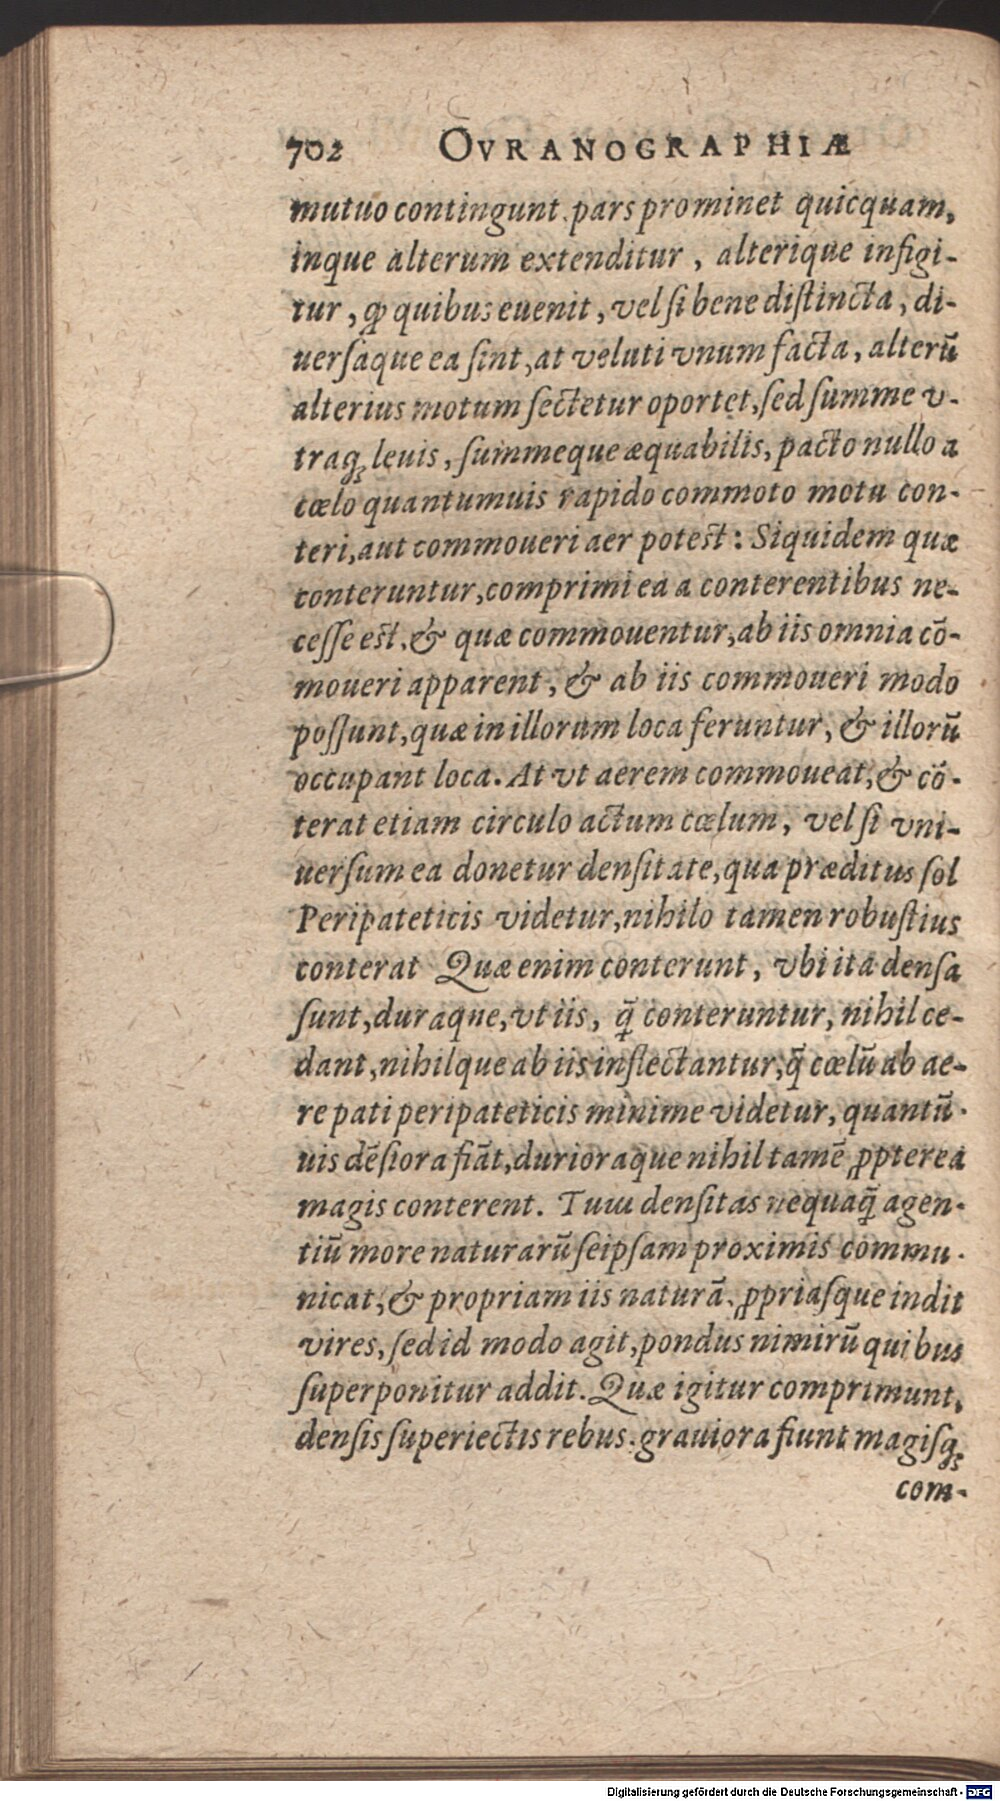 702 OVRANOGRAPHIÆ
mutuo contingunt. pars prominet quicquam,
inque alterum extenditur, alterique infigi-
tur, ꝙ quibus euenit, vel si bene distincta, di-
uersaque ea sint, at veluti vnum facta, alterū
alterius motum sectetur oportet, sed summe v-
traq; leuis, summeque æquabilis, pacto nullo a
cœlo quantumuis rapido commoto motu con-
teri, aut commoueri aer potest: Siquidem quæ
conteruntur, comprimi ea a conterentibus ne-
cesse est. & quæ commouentur, ab iis omnia cō-
moueri apparent, & ab iis commoueri modo
possunt, quæ in illorum loca feruntur, & illorū
occupant loca. At vt aerem commoueat, & cō-
terat etiam circulo actum cœlum, vel si vni-
uersum ea donetur densitate, qua præditus sol
Peripateticis videtur, nihilo tamen robustius
conterat Quæ enim conterunt, vbi ita densa
sunt, duraque, vt iis, q̄ conteruntur, nihil ce-
dant, nihilque ab iis inflectantur, q̄ cœlū ab ae-
re pati peripateticis minime videtur, quantū-
uis dēsiora fiāt, durioraque nihil tamē ꝓpterea
magis conterent. Tum densitas nequaq̄ agen-
tiū more naturarū seipsam proximis commu-
nicat, & propriam iis naturā, ꝓpriasque indit
vires, sed id modo agit, pondus nimirū quibus
superponitur addit. Quæ igitur comprimunt,
densis superiectis rebus. grauiora fiunt magisq;
com-
Digitalisierung gefördert durch die Deutsche Forschungsgemeinschaft - DFG